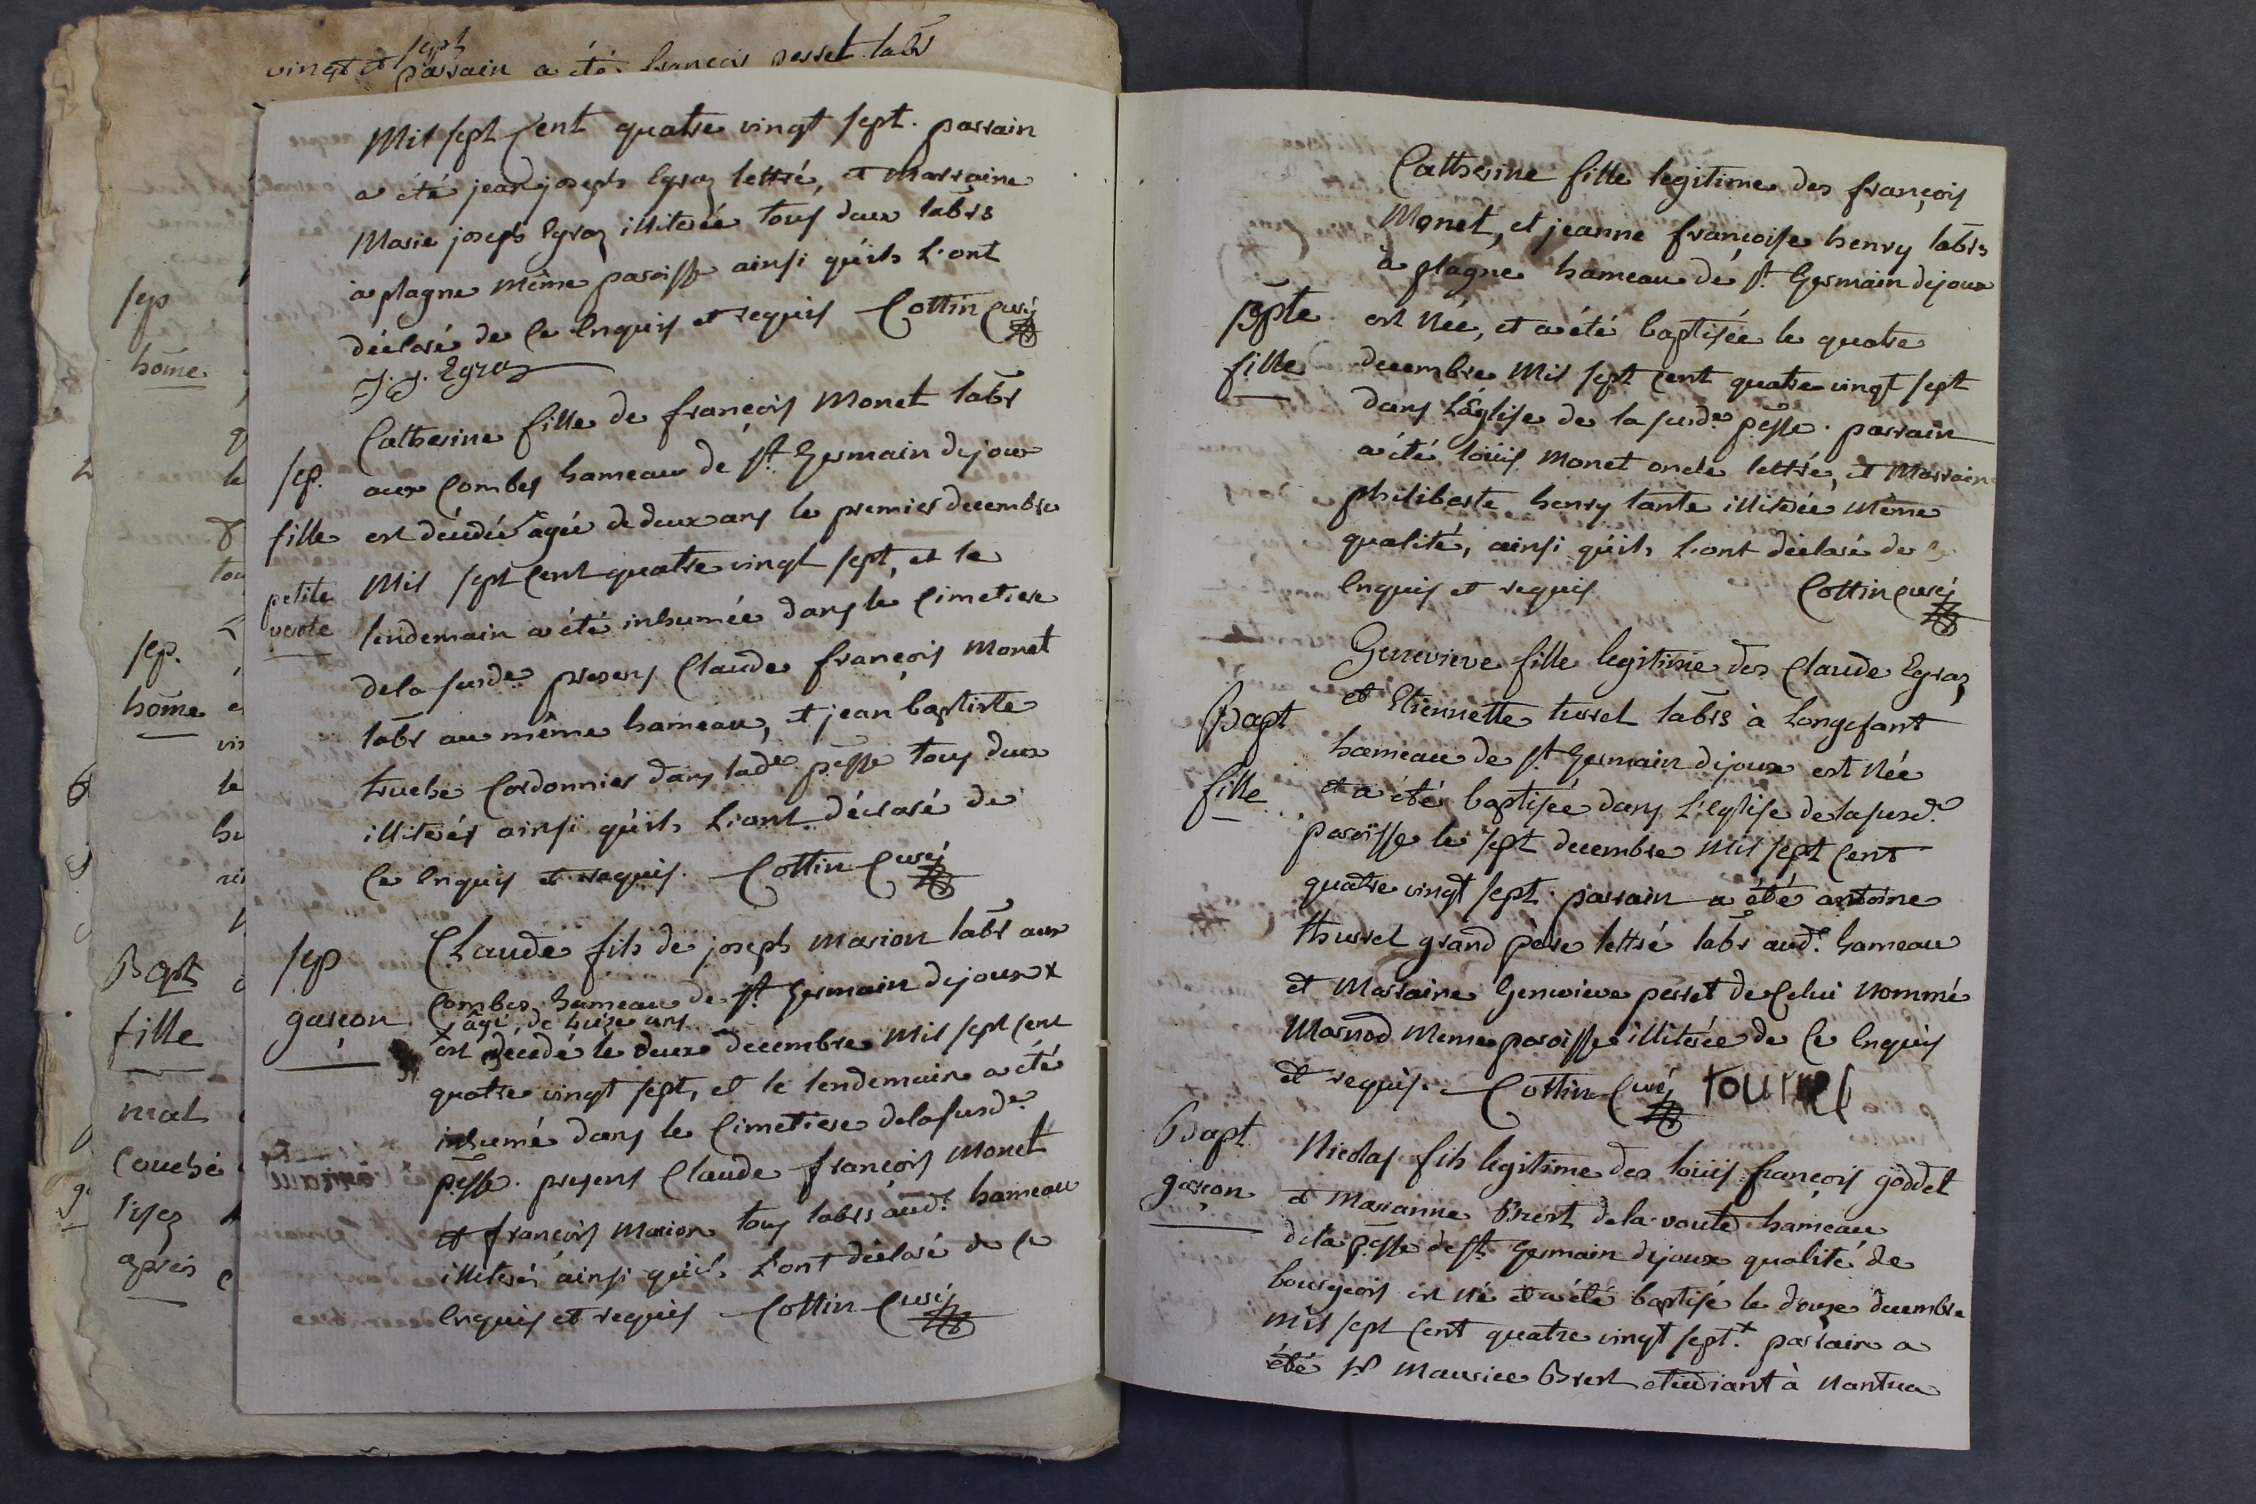 sept
vingt et parrain a été françois perret lab̃r
Mil sept Cent quatre vingt sept. parrain
a été jean joseph Egraz lettré, et Marraine
Marie joseph Egraz illiterée tous deux lab̃rs
a plagne même paroisse ainsi qu'ils L'ont
déclaré de Ce Enquis et requis Cottin Curé
j. j. Egraz
sep.
fille
petite
verote
Catherine fille de françois Monet lab̃r
aux Combes hameau de St. Germain dejoux
est décedée âgée de deux ans le premier decembre
Mil sept Cent quatre vingt sept, et le
lendemain a été inhumée dans le Cimetiere
de la susde. presens Claude françois Monet
lab̃r au même hameau, et jean baptiste
truche Cordonnier dans lade. p̃sse tous deux
illiterés ainsi qu'ils L'ont déclaré de
Ce Enquis et requis. Cottin Curé
sep
garçon
Claude fils de joseph Marion lab̃r aux
Combes hameau de St. Germain dejoux x
âgé de treize ans
est decedé le deux decembre Mil sept Cent
quatre vingt sept, et le lendemain a été
inhumé dans le Cimetiere de la susde.
p̃sse. presens Claude françois Monet
et françois Marion tous lab̃rs aud. hameau
illiterés ainsi qu'ils L'ont déclaré de Ce
Enquis et requis Cottin Curé
sep
home
sep.
home
Bapt
fille
mal
Couché
lisez
après
Bpte
fille
Catherine fille legitime des françois
Monet, et jeanne françoise henry lab̃rs
à plagne hameau de St. Germain dejoux
est Née, et a été baptisée le quatre
decembre Mil sept Cent quatre vingt sept
dans L'Eglise de la susde. p̃sse. parrain
a été loüis Monet oncle lettré, et Marraine
philiberte henry tante illiterée même
qualité, ainsi qu'ils L'ont déclaré de
Enquis et requis Cottin Curé
Bapt
fille
Genevieve fille legitime des Claude Egraz,
et Etiennette turrel lab̃rs à Longefant
hameau de St. Germain dejoux est Née
et a été baptisée dans L'Eglise de la susde.
paroisse le sept decembre Mil sept Cent
quatre vingt sept. parrain a été antoine
thurrel grand père lettré lab̃r aud. hameau
et Marraine Genevieve perret de Celui Nommé
Marnod Meme paroisse illiterée de Ce Enquis
et requis. Cottin Curé
Bapt
garçon
Nicolas fils legitime des loüis françois goddet
et Marianne Brert de la voute hameau
de la p̃sse de St. Germain dejoux qualité de
bourgeois est Né et a été baptisé le douze decembre
Mil sept Cent quatre vingt sept.x parrain a
été Sr. Maurice Brert etudiant à Nantua